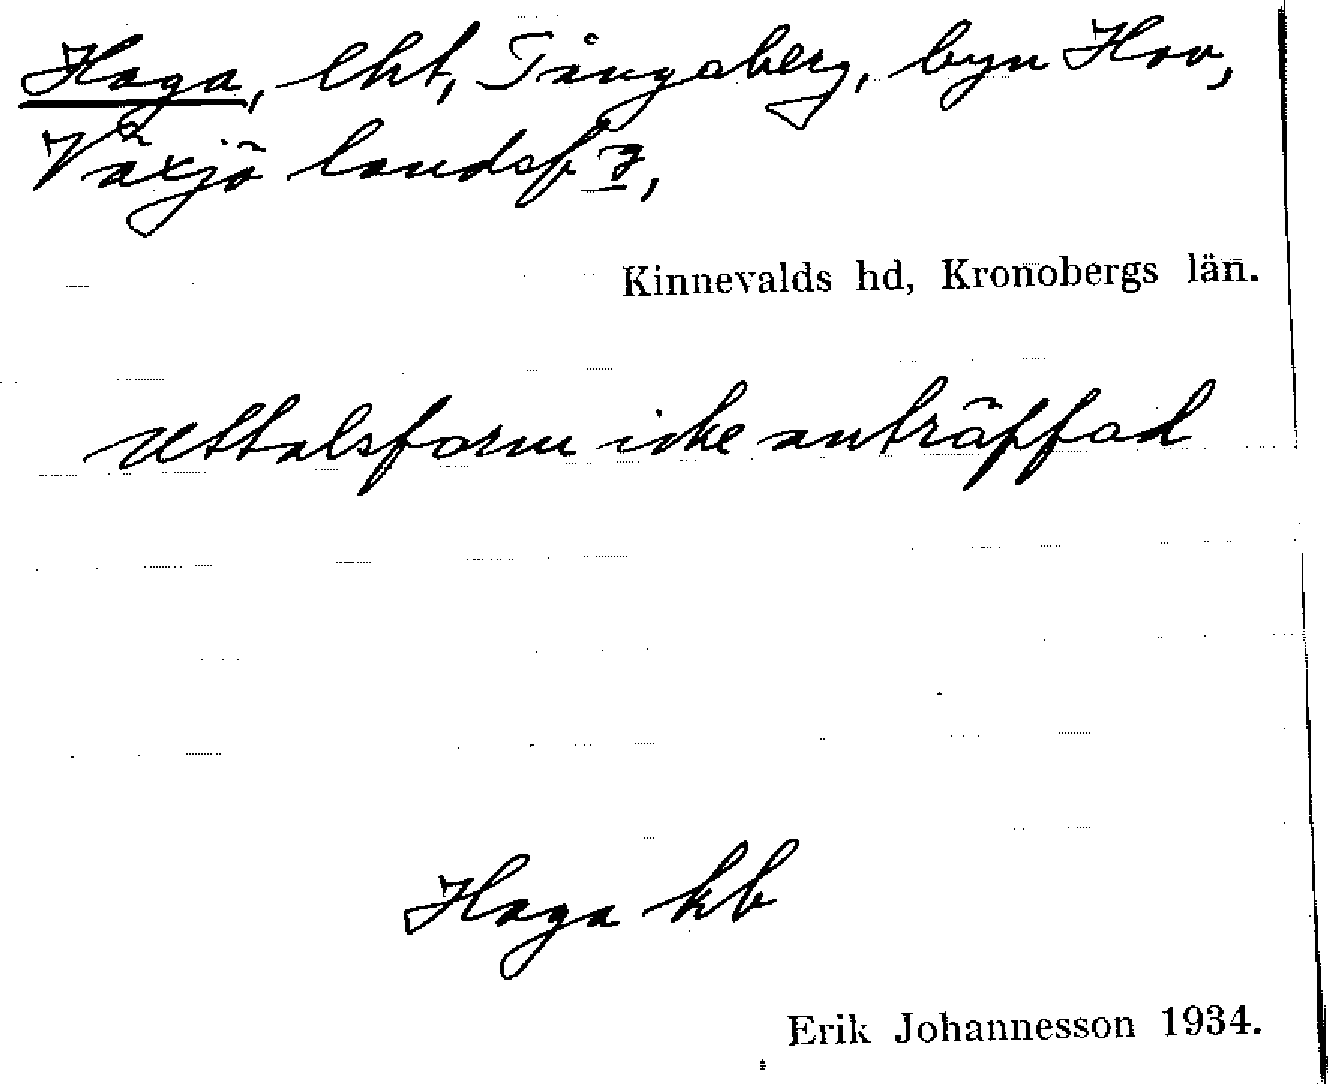 Haga, lht, Tångaberg, byn Hov,
Växjö landsf. 7,
Kinnevalds hd, Kronobergs län.
Uttalsform icke anträffad
Haga kb
Erik Johannesson 1934.